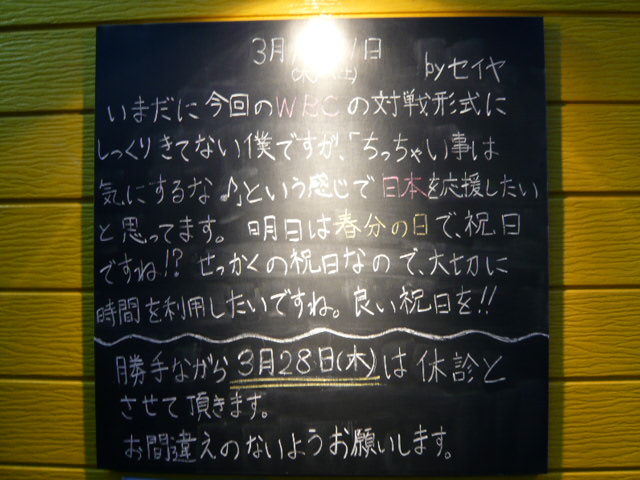 3月 日
byセイヤ
いまだに今回のWBCの対戦形式に
しっくりきてない僕ですが、「ちっちゃい事は
気にするな♪」という感じで日本を応援したい
と思ってます。明日は春分の日で、祝日
ですね!?せっかくの祝日なので、大切に
時間を利用したいですね。良い祝日を!!
勝手ながら3月28日(木)は休診と
させて頂きます。
お間違えのないようお願いします。